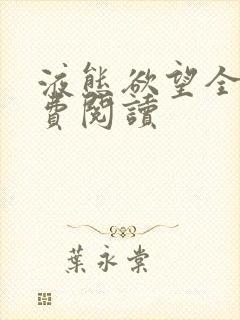 液態欲望全
費閱讀
葉永棠